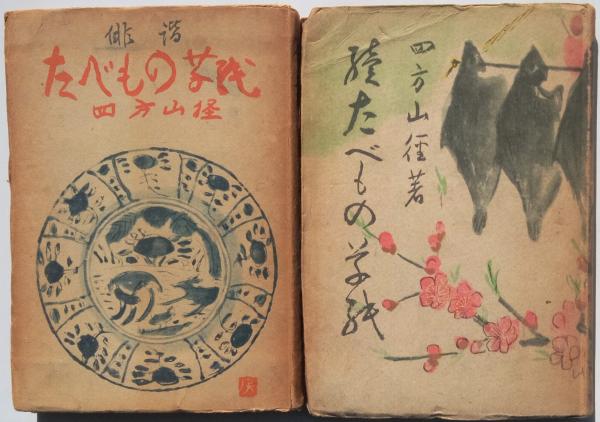 俳諧
たべもの草紙
四方山径
四方山径著
続たべもの草紙